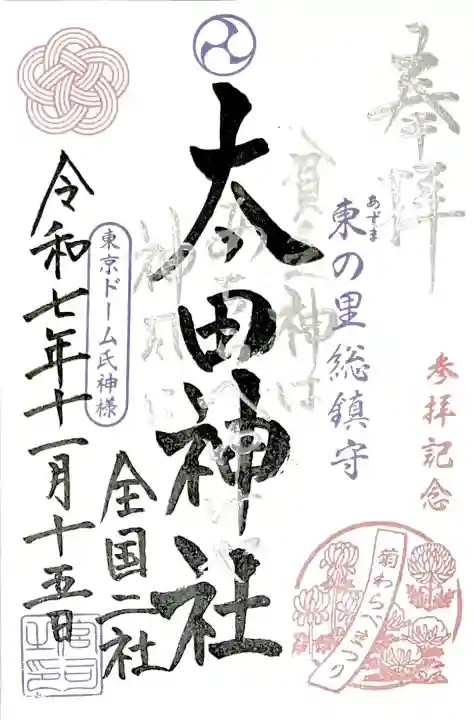 奉拝
参拝記念
東の里総鎮守
あずま
菊わらべまつり
太田神社
全国二社
東京ドーム氏神様
令和七年十一月十五日